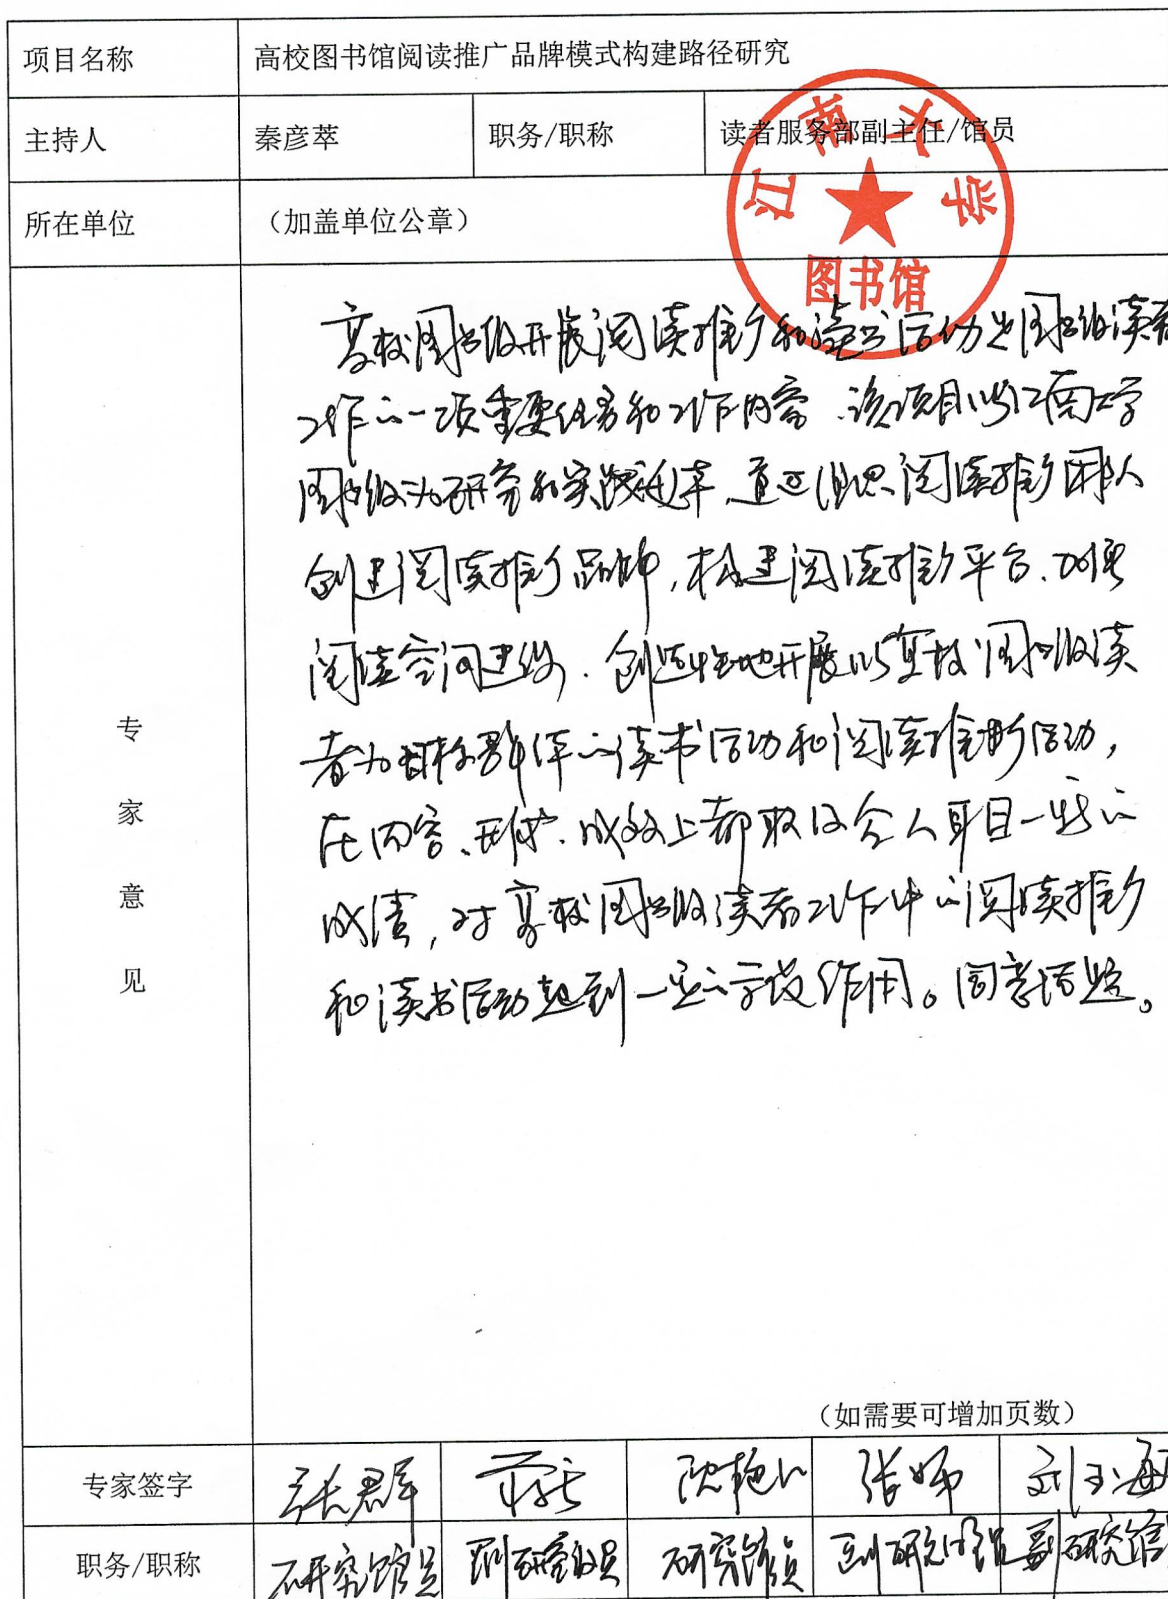 项目名称 高校图书馆阅读推广品牌模式构建路径研究
主持人 秦彦萃 职务/职称 读者服务部副主任/馆员
所在单位 （加盖单位公章）
江南大学
图书馆
高校图书馆开展阅读推广和读书活动是图书馆读者
工作的一项重要任务和工作内容、该项目以江南大学
图书馆为研究和实践对象，通过组建阅读推广团队
创建阅读推广品牌，构建阅读推广平台、加强
阅读空间建设、创造性地开展以高校图书馆读
者为目标群体的读书活动和阅读推广活动，
在内容、形式、成效上都取得令人耳目一新的
成绩，对高校图书馆读者工作中的阅读推广
和读书活动起到一定的示范作用。同意结题。
专家意见
（如需要可增加页数）
专家签字 张群 沈艳 张 刘玉海
职务/职称 研究馆员 副研究馆员 研究馆员 副研究馆员 副研究馆